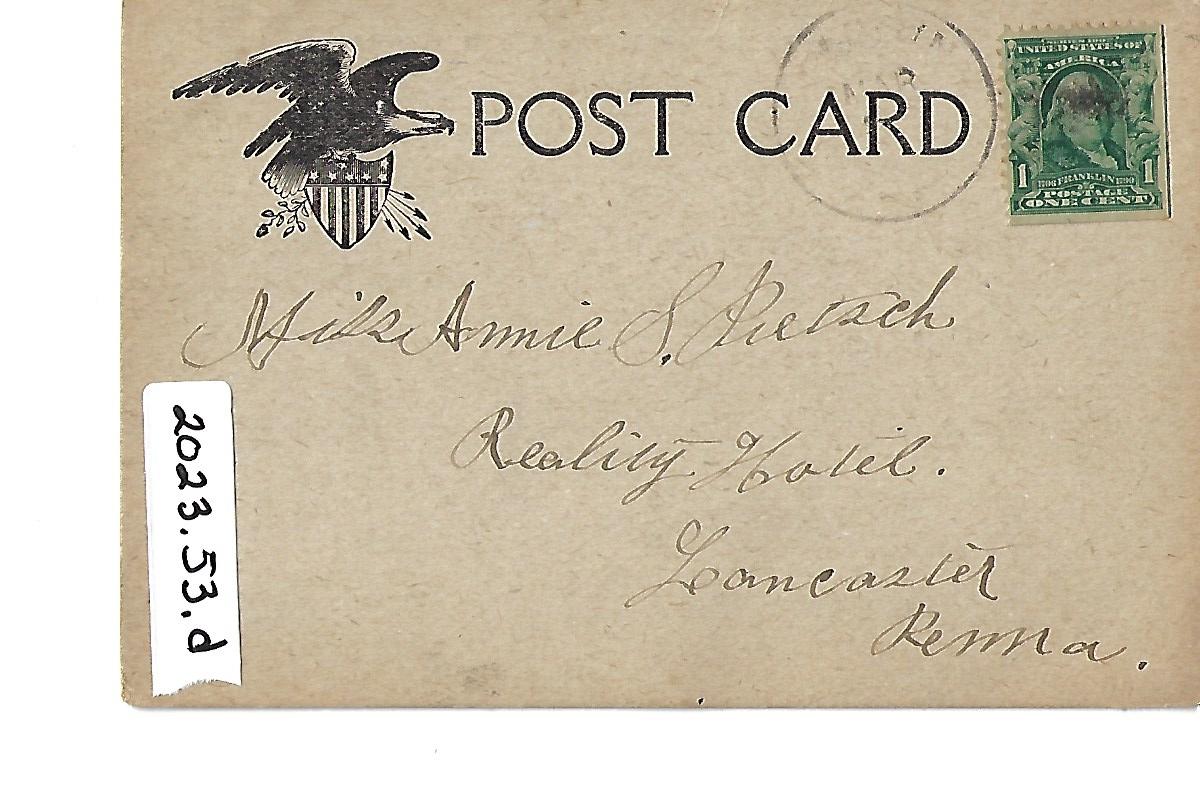 POST CARD
MAR
SERIES 1902
UNITED STATES OF
AMERICA
1 1
1706 FRANKLIN 1790
POSTAGE
ONE CENT
Miss Annie S. Pietsch
Reality Hotel.
Lancaster
Penna.
2023.53.d